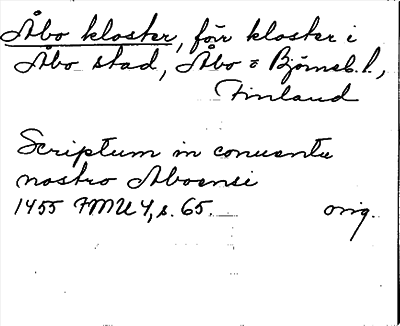 Åbo kloster, förr kloster i
Åbo stad, Åbo o Björneb. l.,
Finland
Scriptum in conuentu
nostro Aboensi
1455 FMU 4, s. 65. orig.